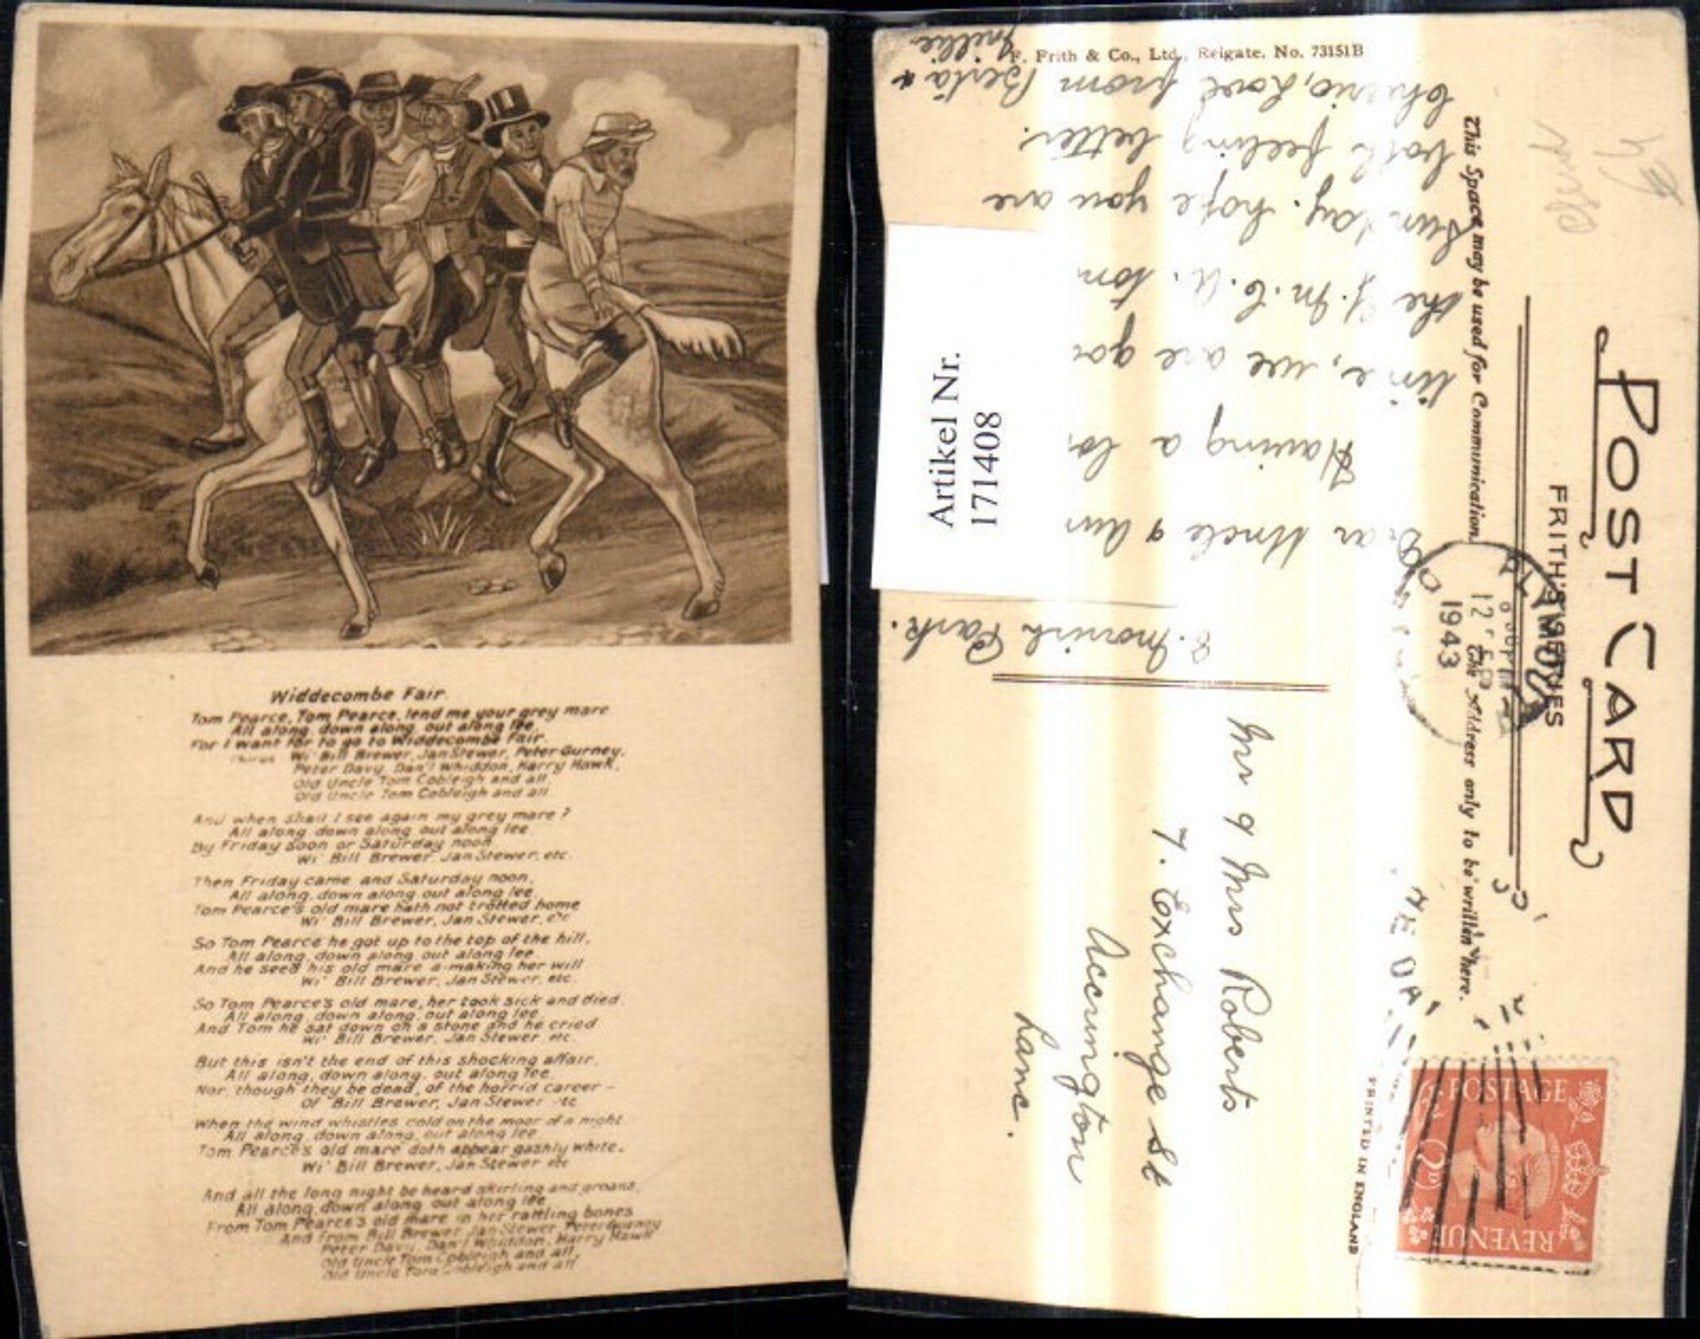 Widdecombe Fair.
Tom Pearce, Tom Pearce, lend me your grey mare
All along, down along, out along lee,
For I want for to go to Widdecombe Fair.
Wi' Bill Brewer, Jan Stewer, Peter Gurney,
Peter Davy, Dan'l Whiddon, Harry Hawk,
Old Uncle Tom Cobleigh and all
Old Uncle Tom Cobleigh and all
And when shall I see again my grey mare?
All along, down along, out along lee
By Friday soon or Saturday noon
Wi' Bill Brewer, Jan Stewer, etc.
Then Friday came and Saturday noon,
All along, down along, out along lee
Tom Pearce's old mare hath not trotted home
Wi' Bill Brewer, Jan Stewer, etc
So Tom Pearce he got up to the top of the hill,
All along, down along, out along lee
And he seed his old mare a-making her will
Wi' Bill Brewer, Jan Stewer, etc.
So Tom Pearce's old mare, her took sick and died.
All along, down along, out along lee
And Tom he sat down on a stone and he cried
Wi' Bill Brewer, Jan Stewer etc.
But this isn't the end of this shocking affair,
All along, down along, out along lee
Nor, though they be dead, of the horrid career -
Of Bill Brewer, Jan Stewer etc
When the wind whistles cold on the moor of a night
All along, down along, out along lee
Tom Pearce's old mare doth appear gashly white,
Wi' Bill Brewer, Jan Stewer etc
And all the long night be heard skirling and groans,
All along, down along, out along lee
From Tom Pearce's old mare in her rattling bones
And from Bill Brewer, Jan Stewer, Peter Gurney
Peter Davy, Dan'l Whiddon, Harry Hawk
Old Uncle Tom Cobleigh and all,
Old Uncle Tom Cobleigh and all
F. Frith & Co., Ltd., Reigate. No. 73151B
POST CARD
FRITH'S SERIES
This Space may be used for Communication.
The Address only to be written here.
PRINTED IN ENGLAND
Artikel Nr.
171408
8. Morrish Park.
Dear Uncle &
Having a
time, we are
the Y.M.C.A. ton
Sunday. hope you are
both feeling better.
Cheerio, Love from Berta &
Millie
Mr & Mrs Roberts
7. Exchange St
Accrington
Lanc.
12 FEB
1943
POSTAGE
REVENUE